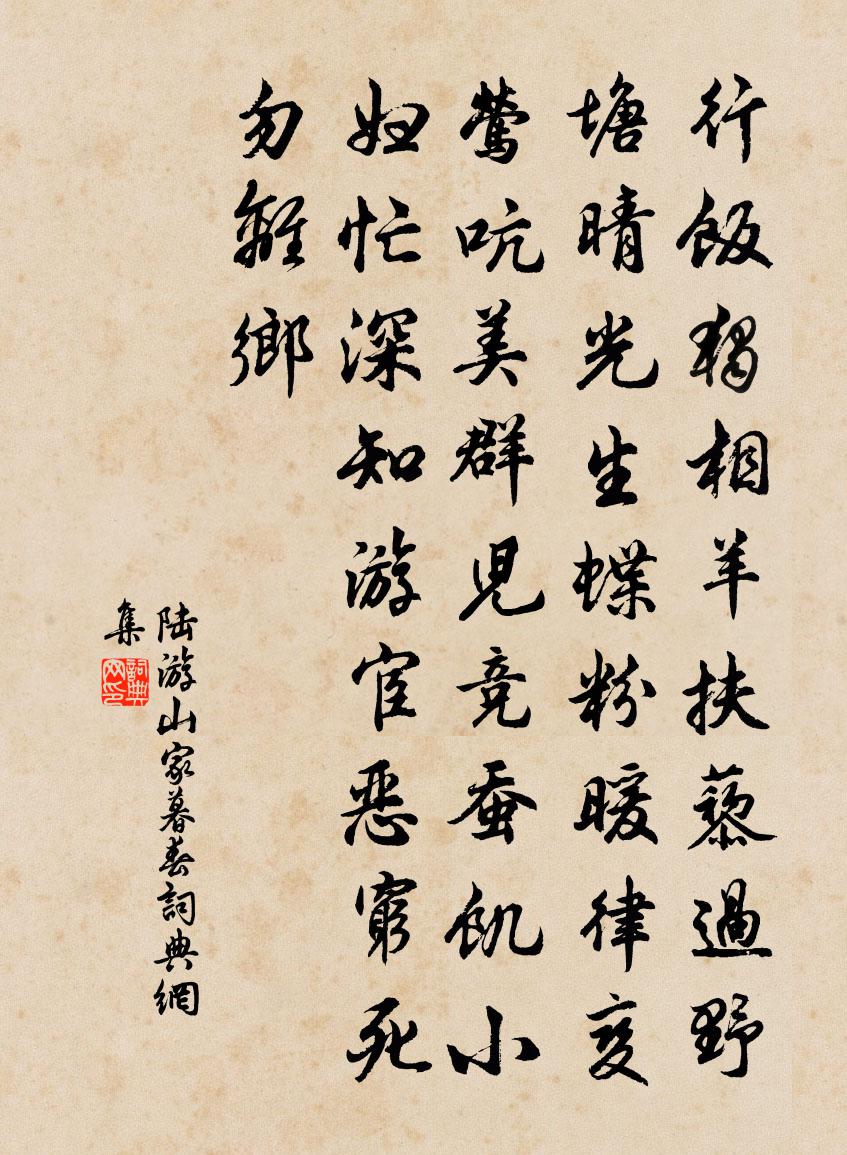 行飯獨相羊扶藜過野
塘晴光生蝶粉暖律变
鶯吭美群兒競蚕飢小
妇忙深知游宦惡窮死
勿離鄉
陆游山家暮春詞典網
集
詞典
网印